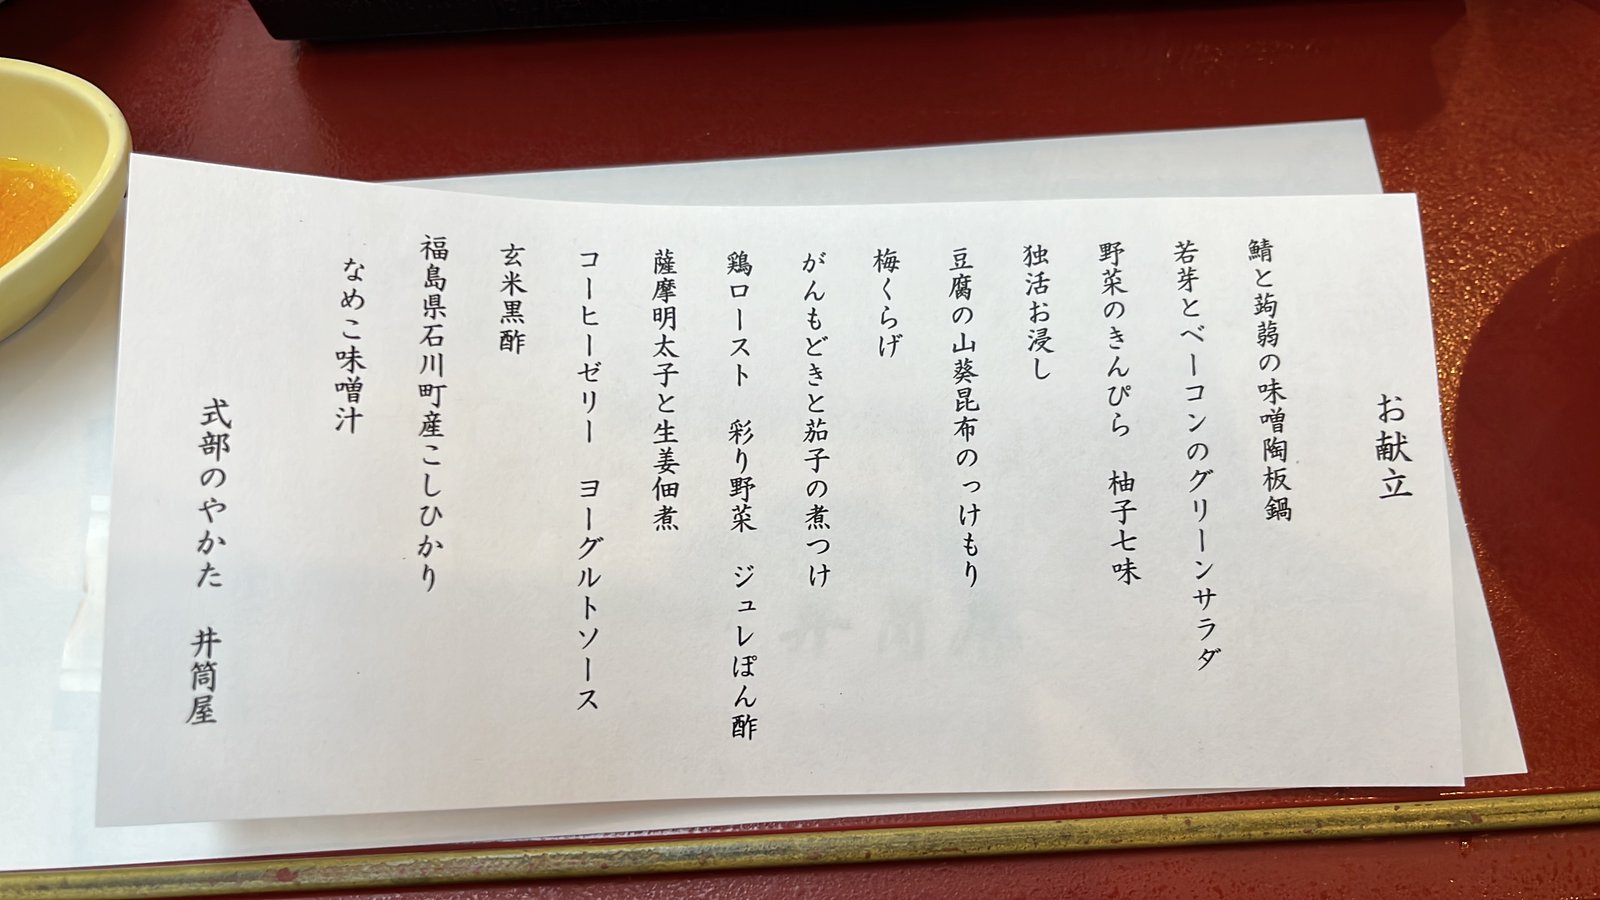 お献立
鯖と蒟蒻の味噌陶板鍋
若芽とベーコンのグリーンサラダ
野菜のきんぴら　柚子七味
独活お浸し
豆腐の山葵昆布のっけもり
梅くらげ
がんもどきと茄子の煮つけ
鶏ロースト　彩り野菜　ジュレぽん酢
薩摩明太子と生姜佃煮
コーヒーゼリー　ヨーグルトソース
玄米黒酢
福島県石川町産こしひかり
なめこ味噌汁
式部のやかた　井筒屋